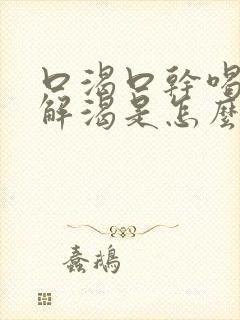 口渴口幹喝
解渴是怎麼
蠢鵝